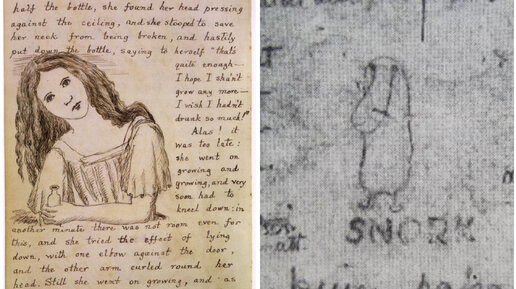 half the bottle, she found her head pressing
against the ceiling, and she stooped to save
her neck from being broken, and hastily
put down the bottle, saying to herself "that's
quite enough—
I hope I shan't
grow any more—
I wish I hadn't
drank so much!"
Alas! it
was too late:
she went on
growing and
growing, and very
soon had to
kneel down: in
another minute there was not room even for
this, and she tried the effect of lying
down, with one elbow against the door,
and the other arm curled round her
head. Still she went on growing, and as
SNORK